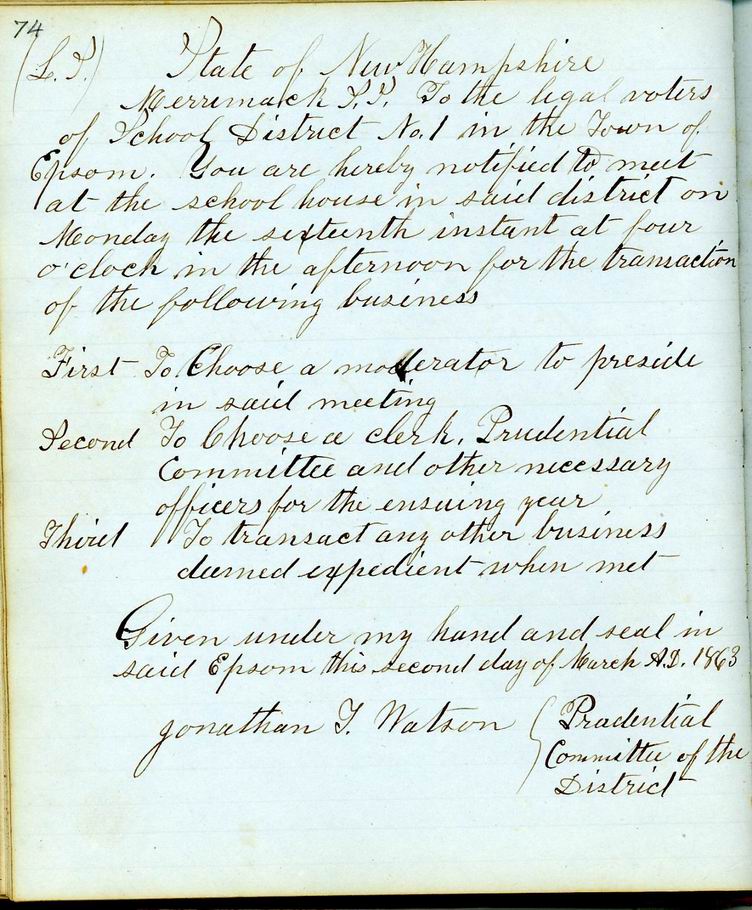 74
(L.S.) State of New Hampshire
Merrimack S.S. To the legal voters
of School District No. 1 in the Town of
Epsom. You are hereby notified to meet
at the school house in said district on
Monday the sixteenth instant at four
o'clock in the afternoon for the transaction
of the following business
First To Choose a moderator to preside
in said meeting
Second To Choose a clerk, Prudential
Committee and other necessary
officers for the ensuing year
Third To transact any other business
deemed expedient when met
Given under my hand and seal in
said Epsom this second day of March A.D. 1863
Jonathan T. Watson { Prudential
Committee of the
District